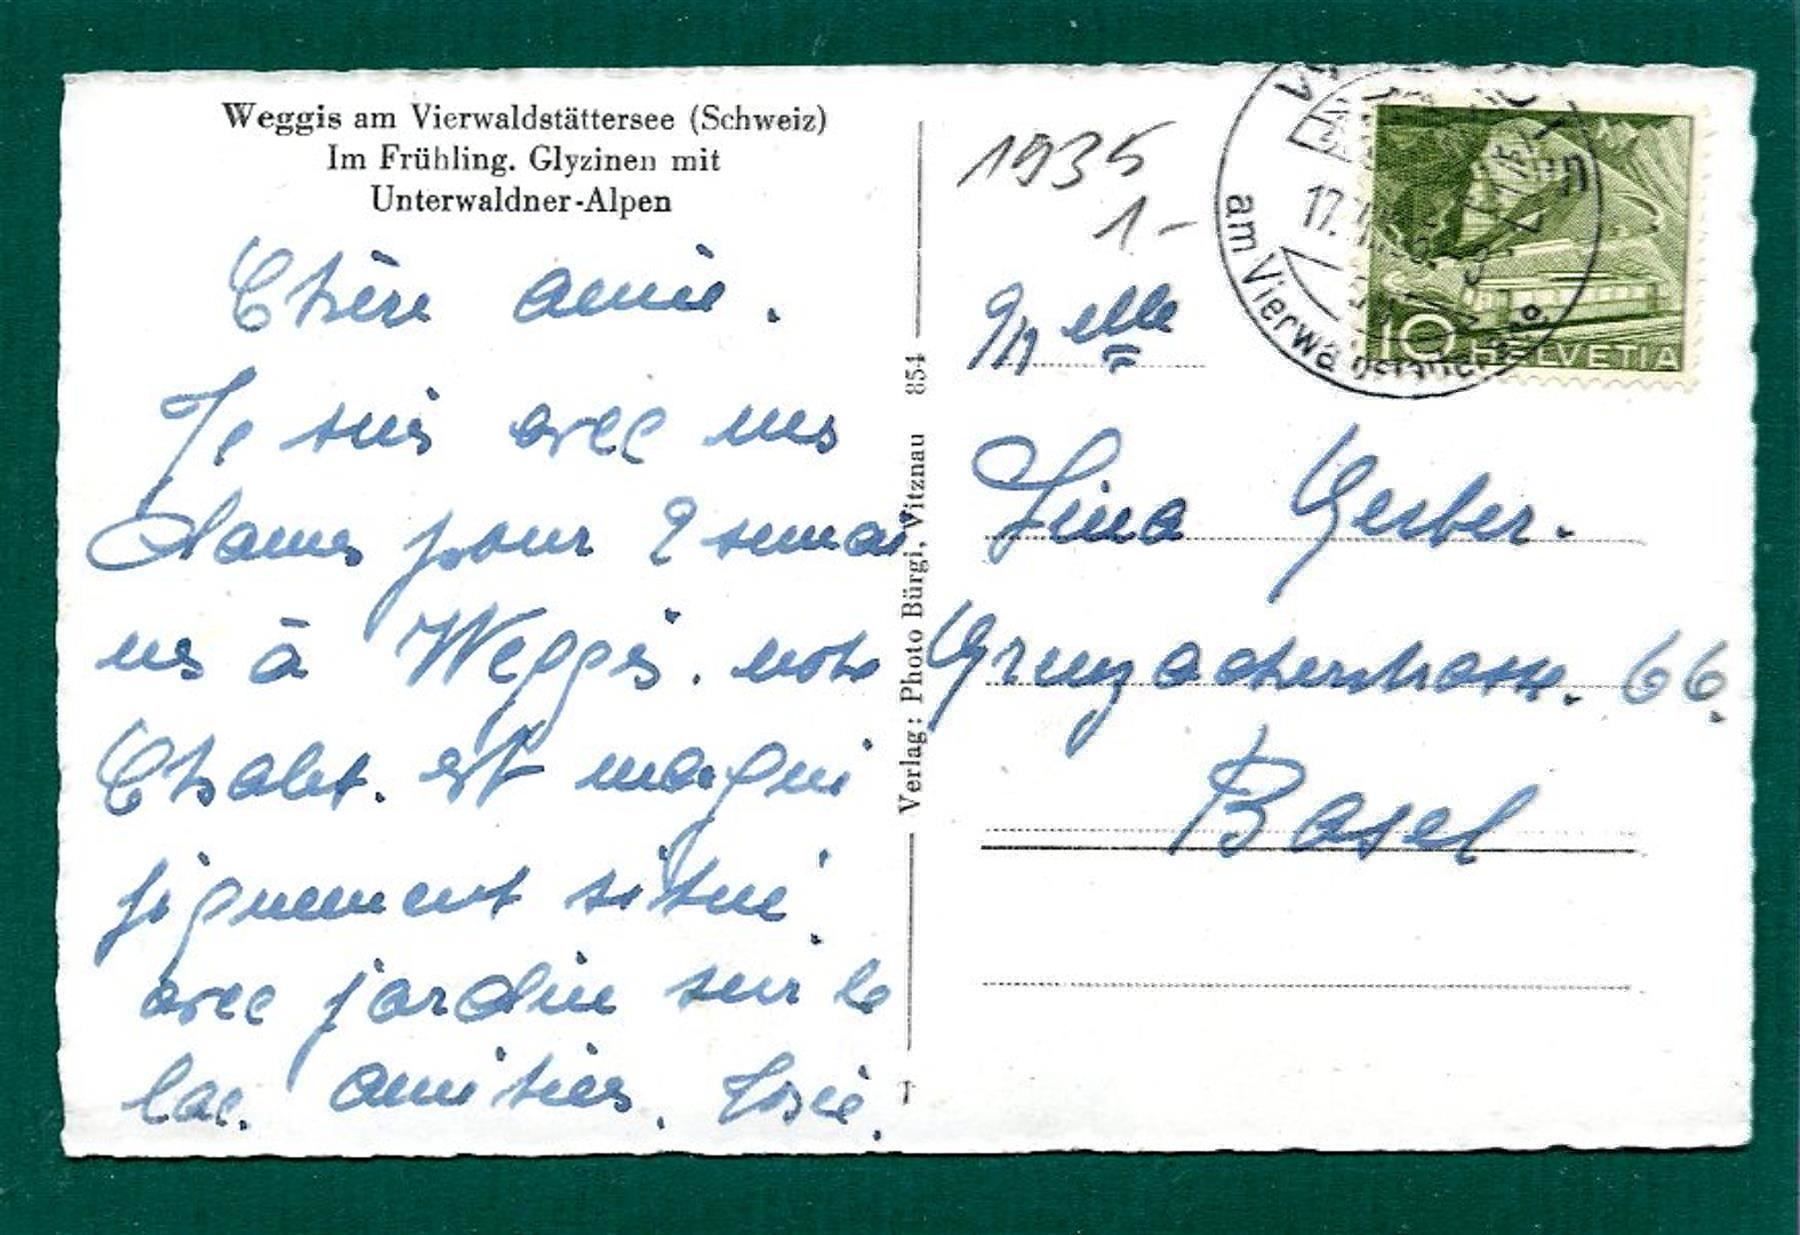 Weggis am Vierwaldstättersee (Schweiz)
Im Frühling. Glyzinen mit
Unterwaldner-Alpen
Chère amie.
Je suis avec mes
dames pour 2 semai
nes à Weggis. notre
Chalet. est magni
fiquement situé.
avec jardin sur le
lac. amitiés. Josie.
Verlag: Photo Bürgi, Vitznau 854
1935
1-
Melle
Lina Gerber.
Grenzacherstrasse. 66.
Basel
17.
am Vierwaldstättersee
10 HELVETIA